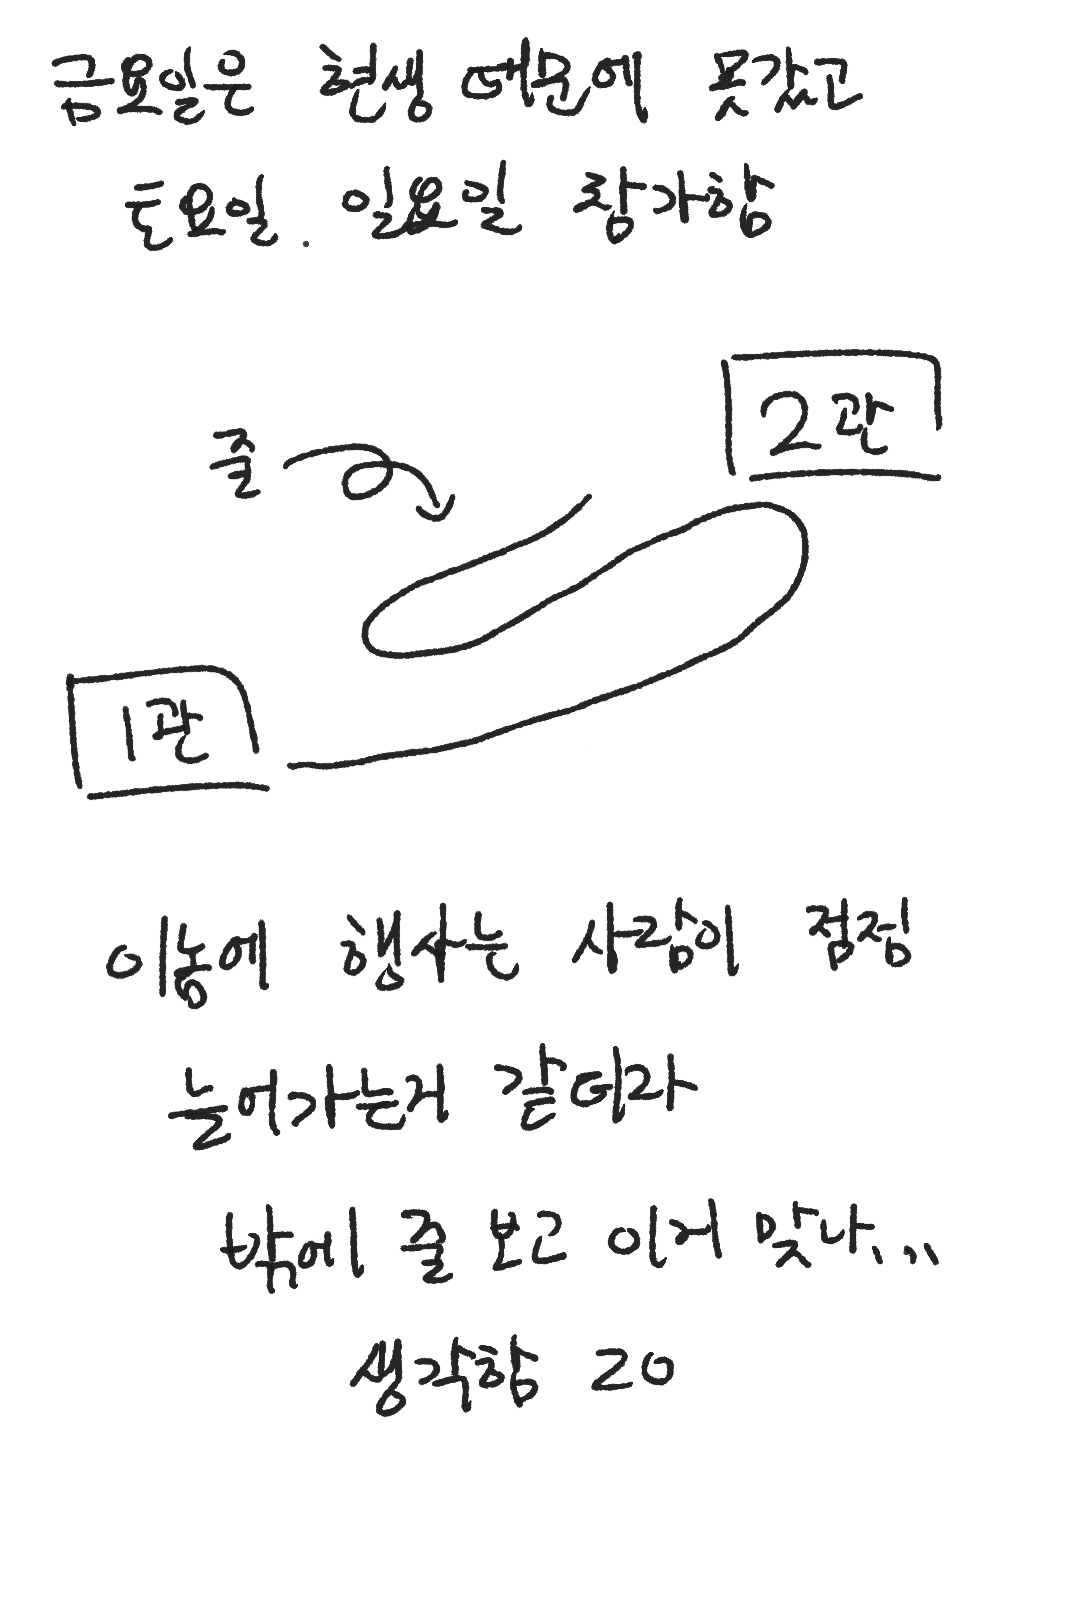 금요일은 현생 때문에 못갔고
토요일. 일요일 참가함
2관
줄
1관
이놈에 행사는 사람이 점점
늘어가는거 같더라
밖에 줄 보고 이거 맞나...
생각함 20